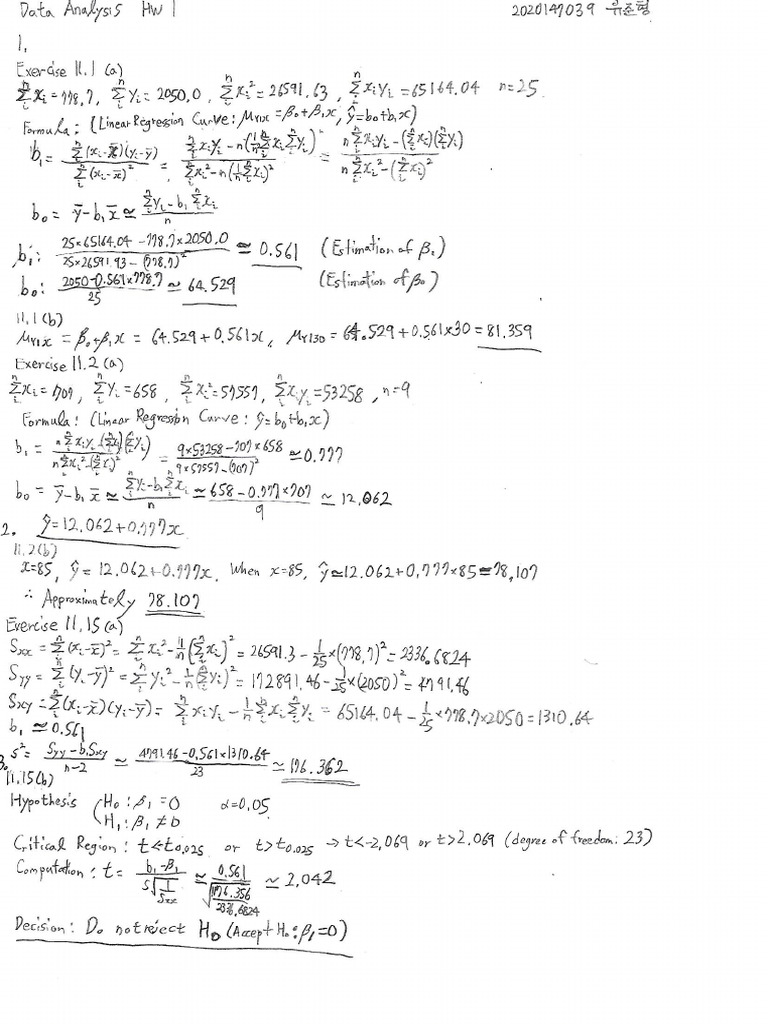 Data Analysis HW 1
2020147039 류준형
1.
Exercise 11.1 (a)
Σxᵢ=778.7, Σyᵢ=2050.0, Σxᵢ²=26591.63, Σxᵢyᵢ=65164.04 n=25
Formula: (Linear Regression Curve: μ_Y|x=β₀+β₁x, ŷ=b₀+b₁x)
b₁= Σ(xᵢ-x̄)(yᵢ-ȳ) / Σ(xᵢ-x̄)² = (Σxᵢyᵢ-n(1/n Σxᵢ Σyᵢ)) / (Σxᵢ²-n(1/n Σxᵢ)²) = (nΣxᵢyᵢ-(Σxᵢ)(Σyᵢ)) / (nΣxᵢ²-(Σxᵢ)²)
b₀ = ȳ-b₁x̄ ≃ (Σyᵢ-b₁Σxᵢ)/n
b₁: (25×65164.04-778.7×2050.0) / (25×26591.93-(778.7)²) ≃ 0.561 (Estimation of β₁)
b₀: (2050-0.561×778.7)/25 ≃ 64.529 (Estimation of β₀)
11.1(b)
μ_Y|x = β₀+β₁x = 64.529+0.561x, μ_Y|30 = 64.529+0.561×30=81.359
Exercise 11.2 (a)
Σxᵢ=707, Σyᵢ=658, Σxᵢ²=57557, Σxᵢyᵢ=53258, n=9
Formula: (Linear Regression Curve: ŷ=b₀+b₁x)
b₁ = (nΣxᵢyᵢ-(Σxᵢ)(Σyᵢ)) / (nΣxᵢ²-(Σxᵢ)²) = (9×53258-707×658) / (9×57557-(707)²) ≃0.777
b₀ = ȳ-b₁x̄ ≃ (Σyᵢ-b₁Σxᵢ)/n ≃ (658-0.777×707)/9 ≃ 12.062
2. ŷ=12.062+0.777x
11.2(b)
x=85, ŷ= 12.062+0.777x. When x=85, ŷ≃12.062+0.777×85≃78.107
∴ Approximately 78.107
Exercise 11.15(a)
Sxx = Σ(xᵢ-x̄)²= Σxᵢ²-1/n(Σxᵢ)² = 26591.3-1/25×(778.7)²=2336.6824
Syy = Σ(yᵢ-ȳ)²=Σyᵢ²-1/n(Σyᵢ)²=172891.46-1/25×(2050)²=4791.46
Sxy =Σ(xᵢ-x̄)(yᵢ-ȳ)= Σxᵢyᵢ-1/n Σxᵢ Σyᵢ = 65164.04-1/25×778.7×2050=1310.64
b₁ ≃0.561
3. s²= (Syy-b₁Sxy)/(n-2) ≃ (4791.46-0.561×1310.64)/23 ≃ 176.362
11.15(b)
Hypothesis (H₀:β₁=0 α=0.05
H₁:β₁≠0
Critical Region: t<-t0.025 or t>t0.025 → t<-2.069 or t>2.069 (degree of freedom: 23)
Computation: t= (b₁-β₁)/(s√(1/Sxx)) ≃ 0.561/√(176.356/2336.6824) ≃ 2.042
Decision: Do not reject H₀ (Accept H₀:β₁=0)